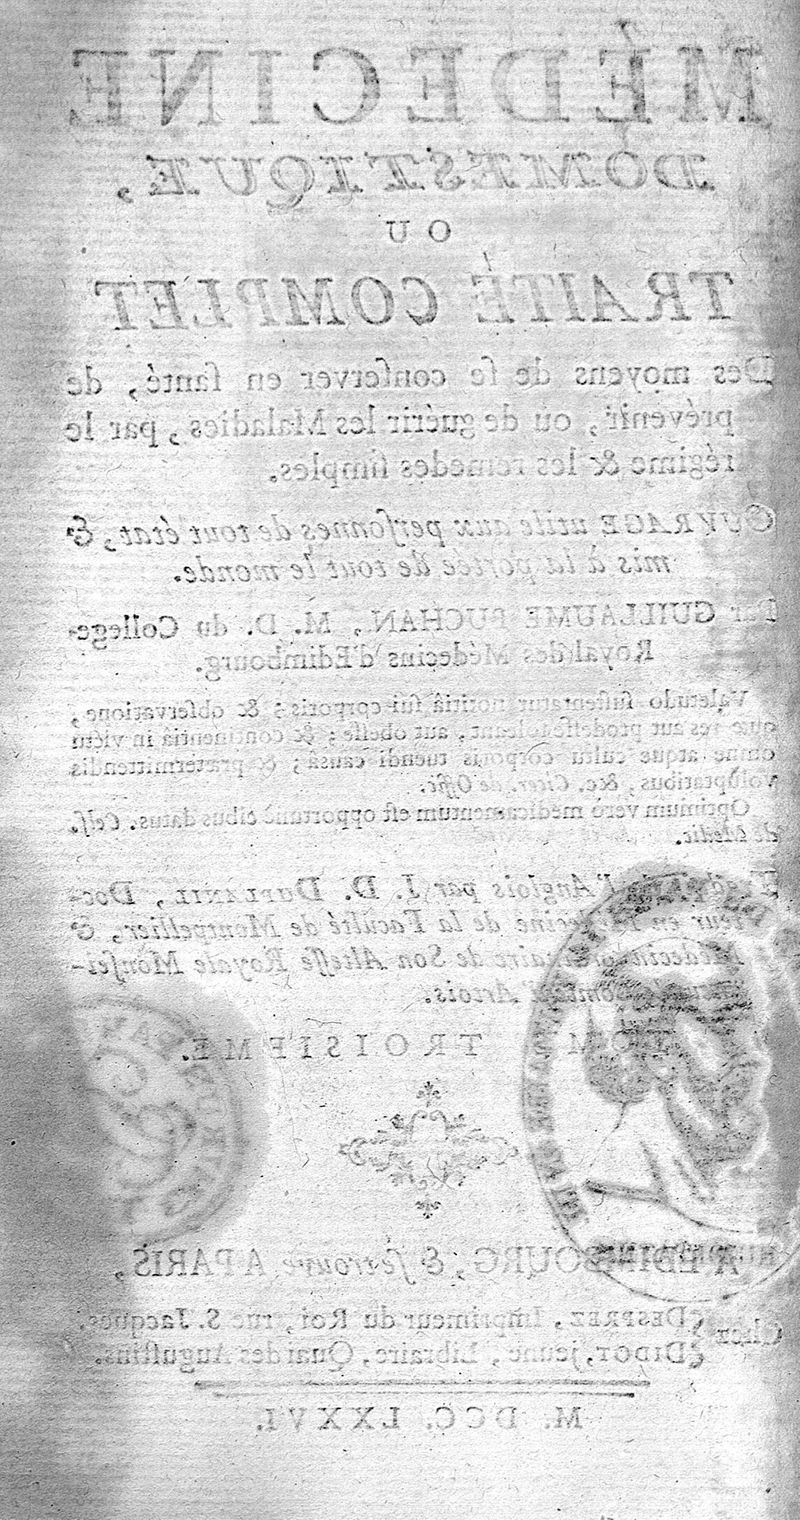 MÉDECINE
DOMESTIQUE,
OU
TRAITÉ COMPLET
Des moyens de ſe conſerver en ſanté, de
prévenir, ou de guérir les Maladies, par le
régime & les remedes ſimples.
OUVRAGE utile aux perſonnes de tout état, &
mis à la portée de tout le monde.
Par GUILLAUME BUCHAN, M. D. du College-
Royal des Médecins d'Edimbourg.
Valetudo ſuſtentatur notitiâ ſui corporis; & obſervatione,
quæ res aut prodeſſe ſoleant, aut obeſſe; & continentiâ in victu
omni atque cultu corporis tuendi cauſâ; & prætermittendis
voluptatibus, &c. Cicer. de Offic.
Optimum verò medicamentum eſt opportunè cibus datus. Celſ.
de Medic.
Traduit de l'Anglois par J. D. DUPLANIL, Doc-
teur en Médecine de la Faculté de Montpellier, &
Médecin ordinaire de Son Alteſſe Royale Monſei-
gneur le Comte d'Artois.
TOME TROISIEME.
A EDIMBOURG, & ſe trouve A PARIS,
Chez
DESPREZ, Imprimeur du Roi, rue S. Jacques.
DIDOT, jeune, Libraire, Quai des Auguſtins.
M. DCC. LXXVI.